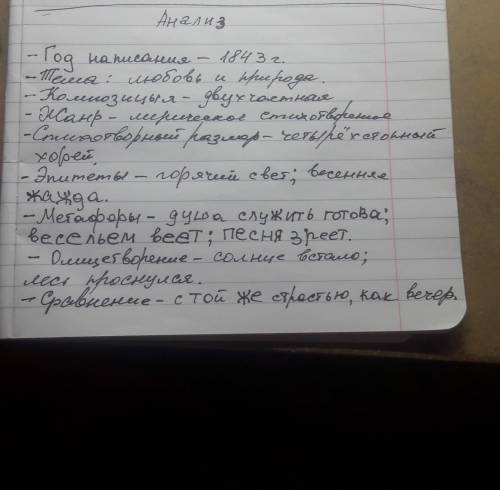 Анализ
- Год написания - 1843 г.
- Тема: любовь и природа.
- Композицыя - двухчастная
- Жанр - лирическое стихотворение
- Стихотворный размер - четырёхстопный
хорей.
- Эпитеты - горячий свет; весенняя
жажда.
- Метафоры - душа служить готова;
весельем веет; песня зреет.
- Олицетворение - солнце встало;
лес проснулся.
- Сравнение - с той же страстью, как вечер.